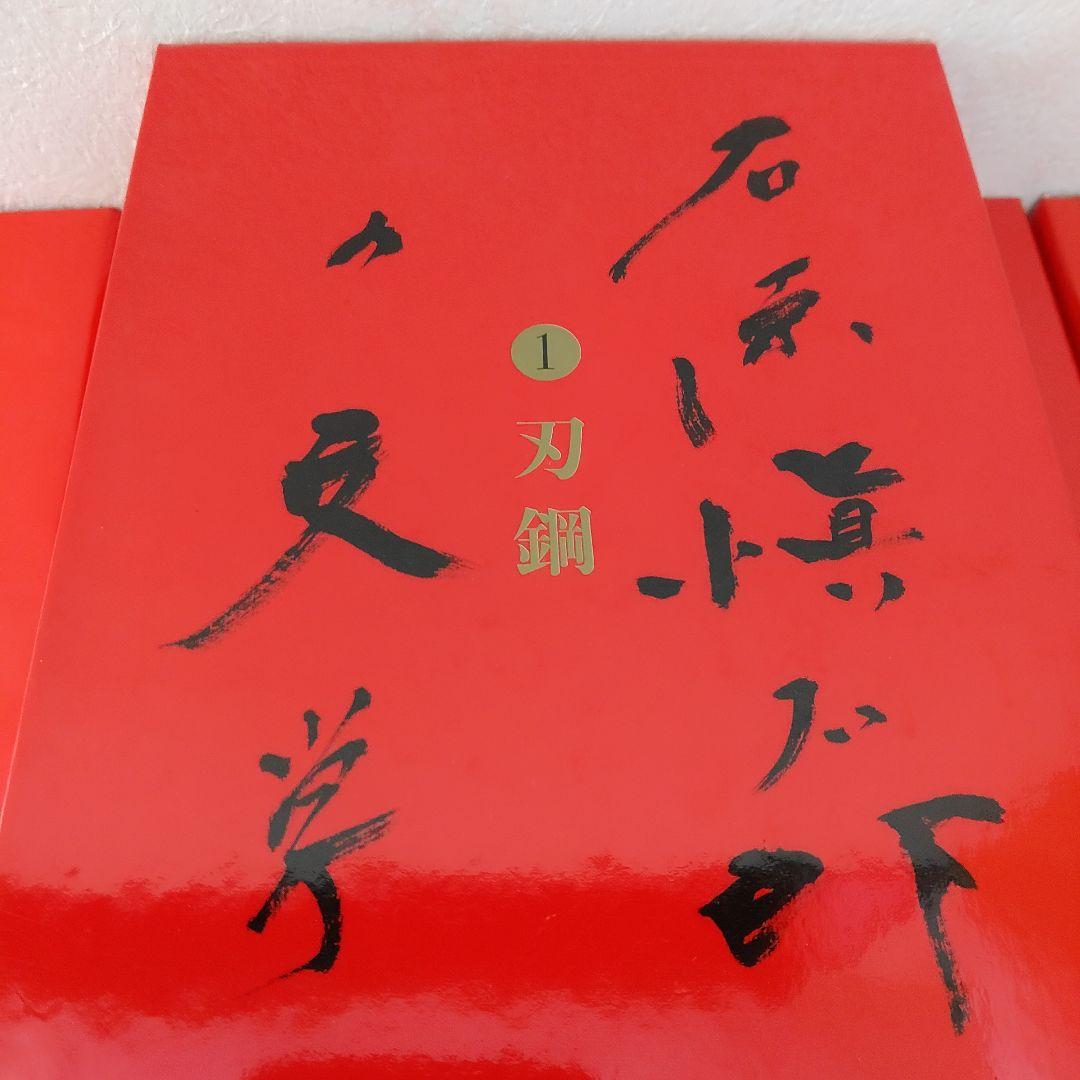 石原慎太郎
1
刃鋼
の文学